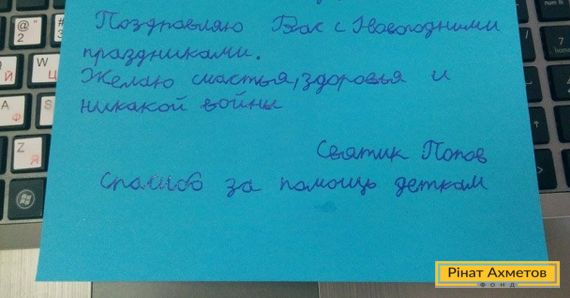 Поздравляю Вас с Новогодними
праздниками.
Желаю счастья, здоровья и
никакой войны
Святик Попов
спасибо за помощь деткам
Рінат Ахметов
ФОНД
@
2
Й
Ц
A
Ф
Z
Я